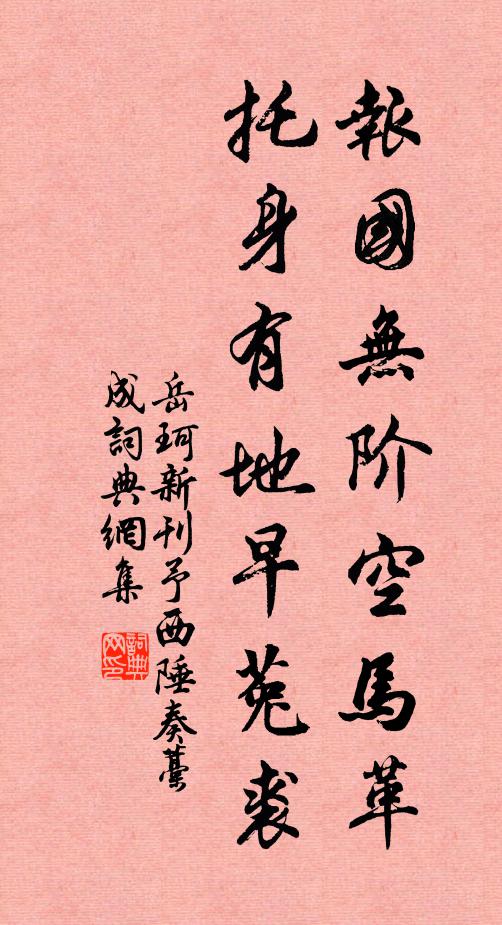 報國無阶空馬革
托身有地早菟裘
岳珂新刊予西陲奏藁
成詞典網集
詞典網印